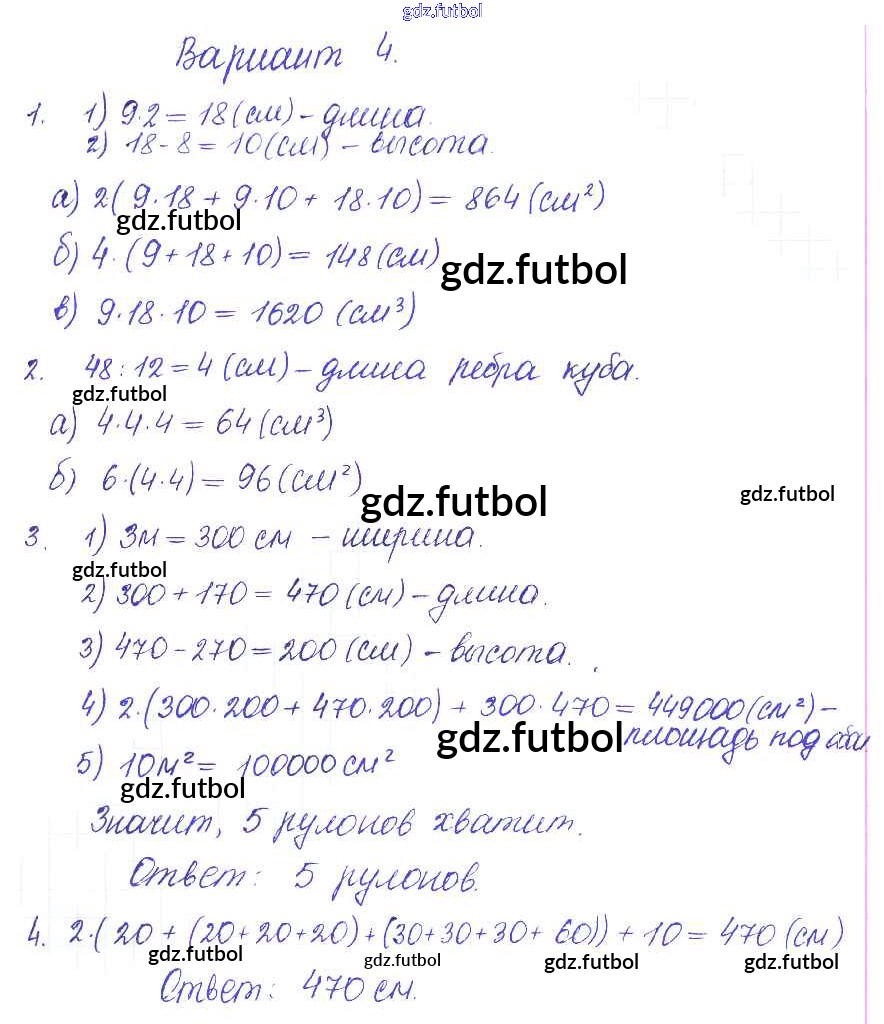 gdz.futbol
Вариант 4.
1. 1) 9·2 = 18 (см) – длина.
2) 18 - 8 = 10 (см) – высота.
а) 2( 9·18 + 9·10 + 18·10) = 864 (см²)
gdz.futbol
б) 4·(9+18+10) = 148 (см)
gdz.futbol
в) 9·18·10 = 1620 (см³)
2. 48:12 = 4 (см) – длина ребра куба.
gdz.futbol
а) 4·4·4 = 64 (см³)
б) 6·(4·4) = 96 (см²)
gdz.futbol gdz.futbol
3. 1) 3м = 300 см – ширина.
gdz.futbol
2) 300 + 170 = 470 (см) – длина.
3) 470 - 270 = 200 (см) – высота.
4) 2·(300·200 + 470·200) + 300·470 = 449000 (см²) –
gdz.futbol площадь под
5) 10м² = 100000 см²
gdz.futbol
Значит, 5 рулонов хватит.
Ответ: 5 рулонов.
4. 2·( 20 + (20+20+20) + (30+30+30+60)) + 10 = 470 (см)
gdz.futbol gdz.futbol gdz.futbol gdz.futbol
Ответ: 470 см.